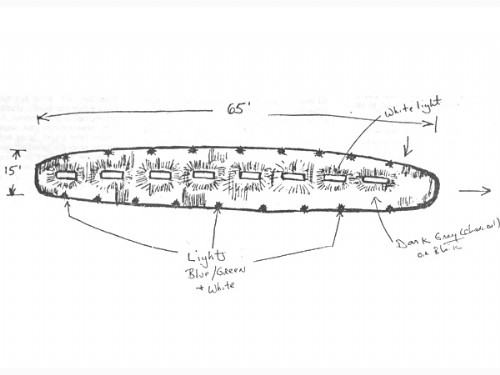 65'
White light
15'
Lights
Blue/Green
+ White
Dark Grey (charcoal)
or Black